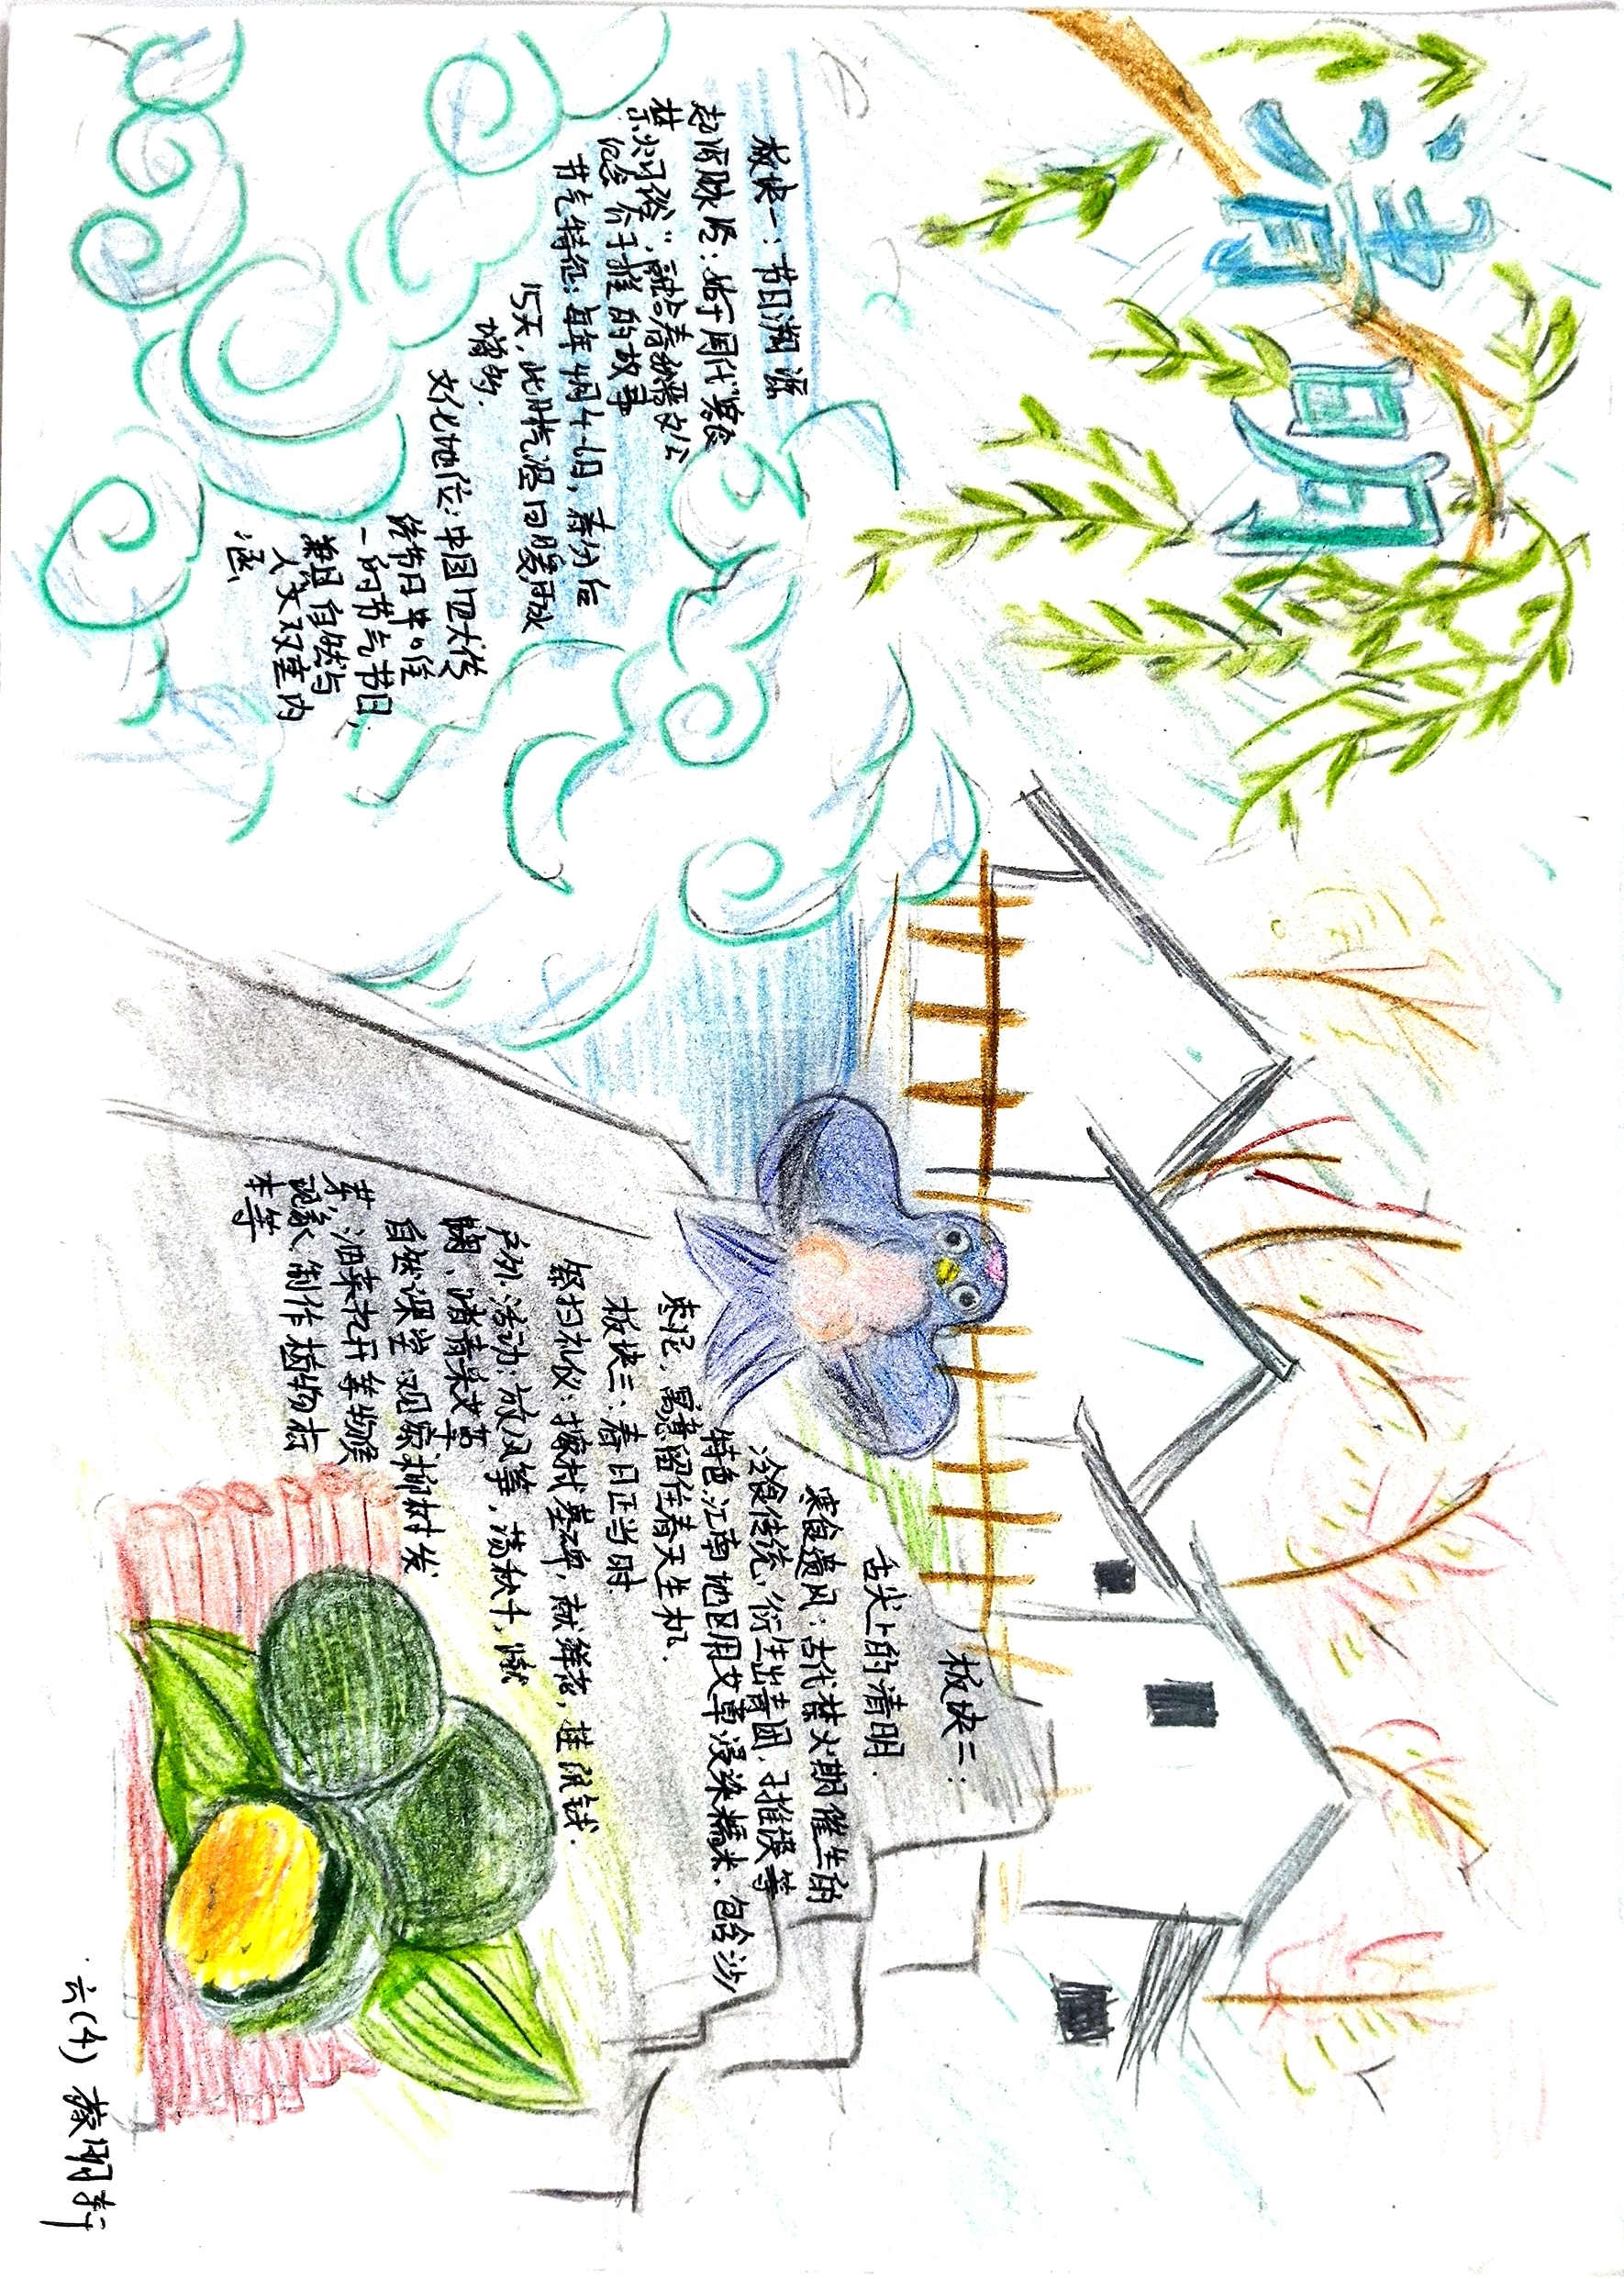 清明
板块一：节日溯源
起源脉络：始于周代"寒食
禁火习俗"，融合春秋晋文公
纪念介子推的故事
节气特征：每年4月4-6日，春分后
15天，此时气温回暖，雨水
增多.
文化地位：中国四大传
统节日中唯
一的节气节日，
兼具自然与
人文双重内
涵、
板块二：
舌尖上的清明.
寒食遗风：古代禁火期催生的
冷食传统，衍生出青团、子推馍等
特色.江南地区用艾草浸染糯米、包合沙
枣泥、寓意留住春天生机.
板块三：春日正当时
祭扫礼仪：擦拭墓碑，献鲜花，挂纸钱.
户外活动：放风筝，荡秋千，蹴
鞠、踏青采艾草
自然课堂：观察柳树发
芽、油菜花开等物候
现象、制作植物标
本等
六(4)